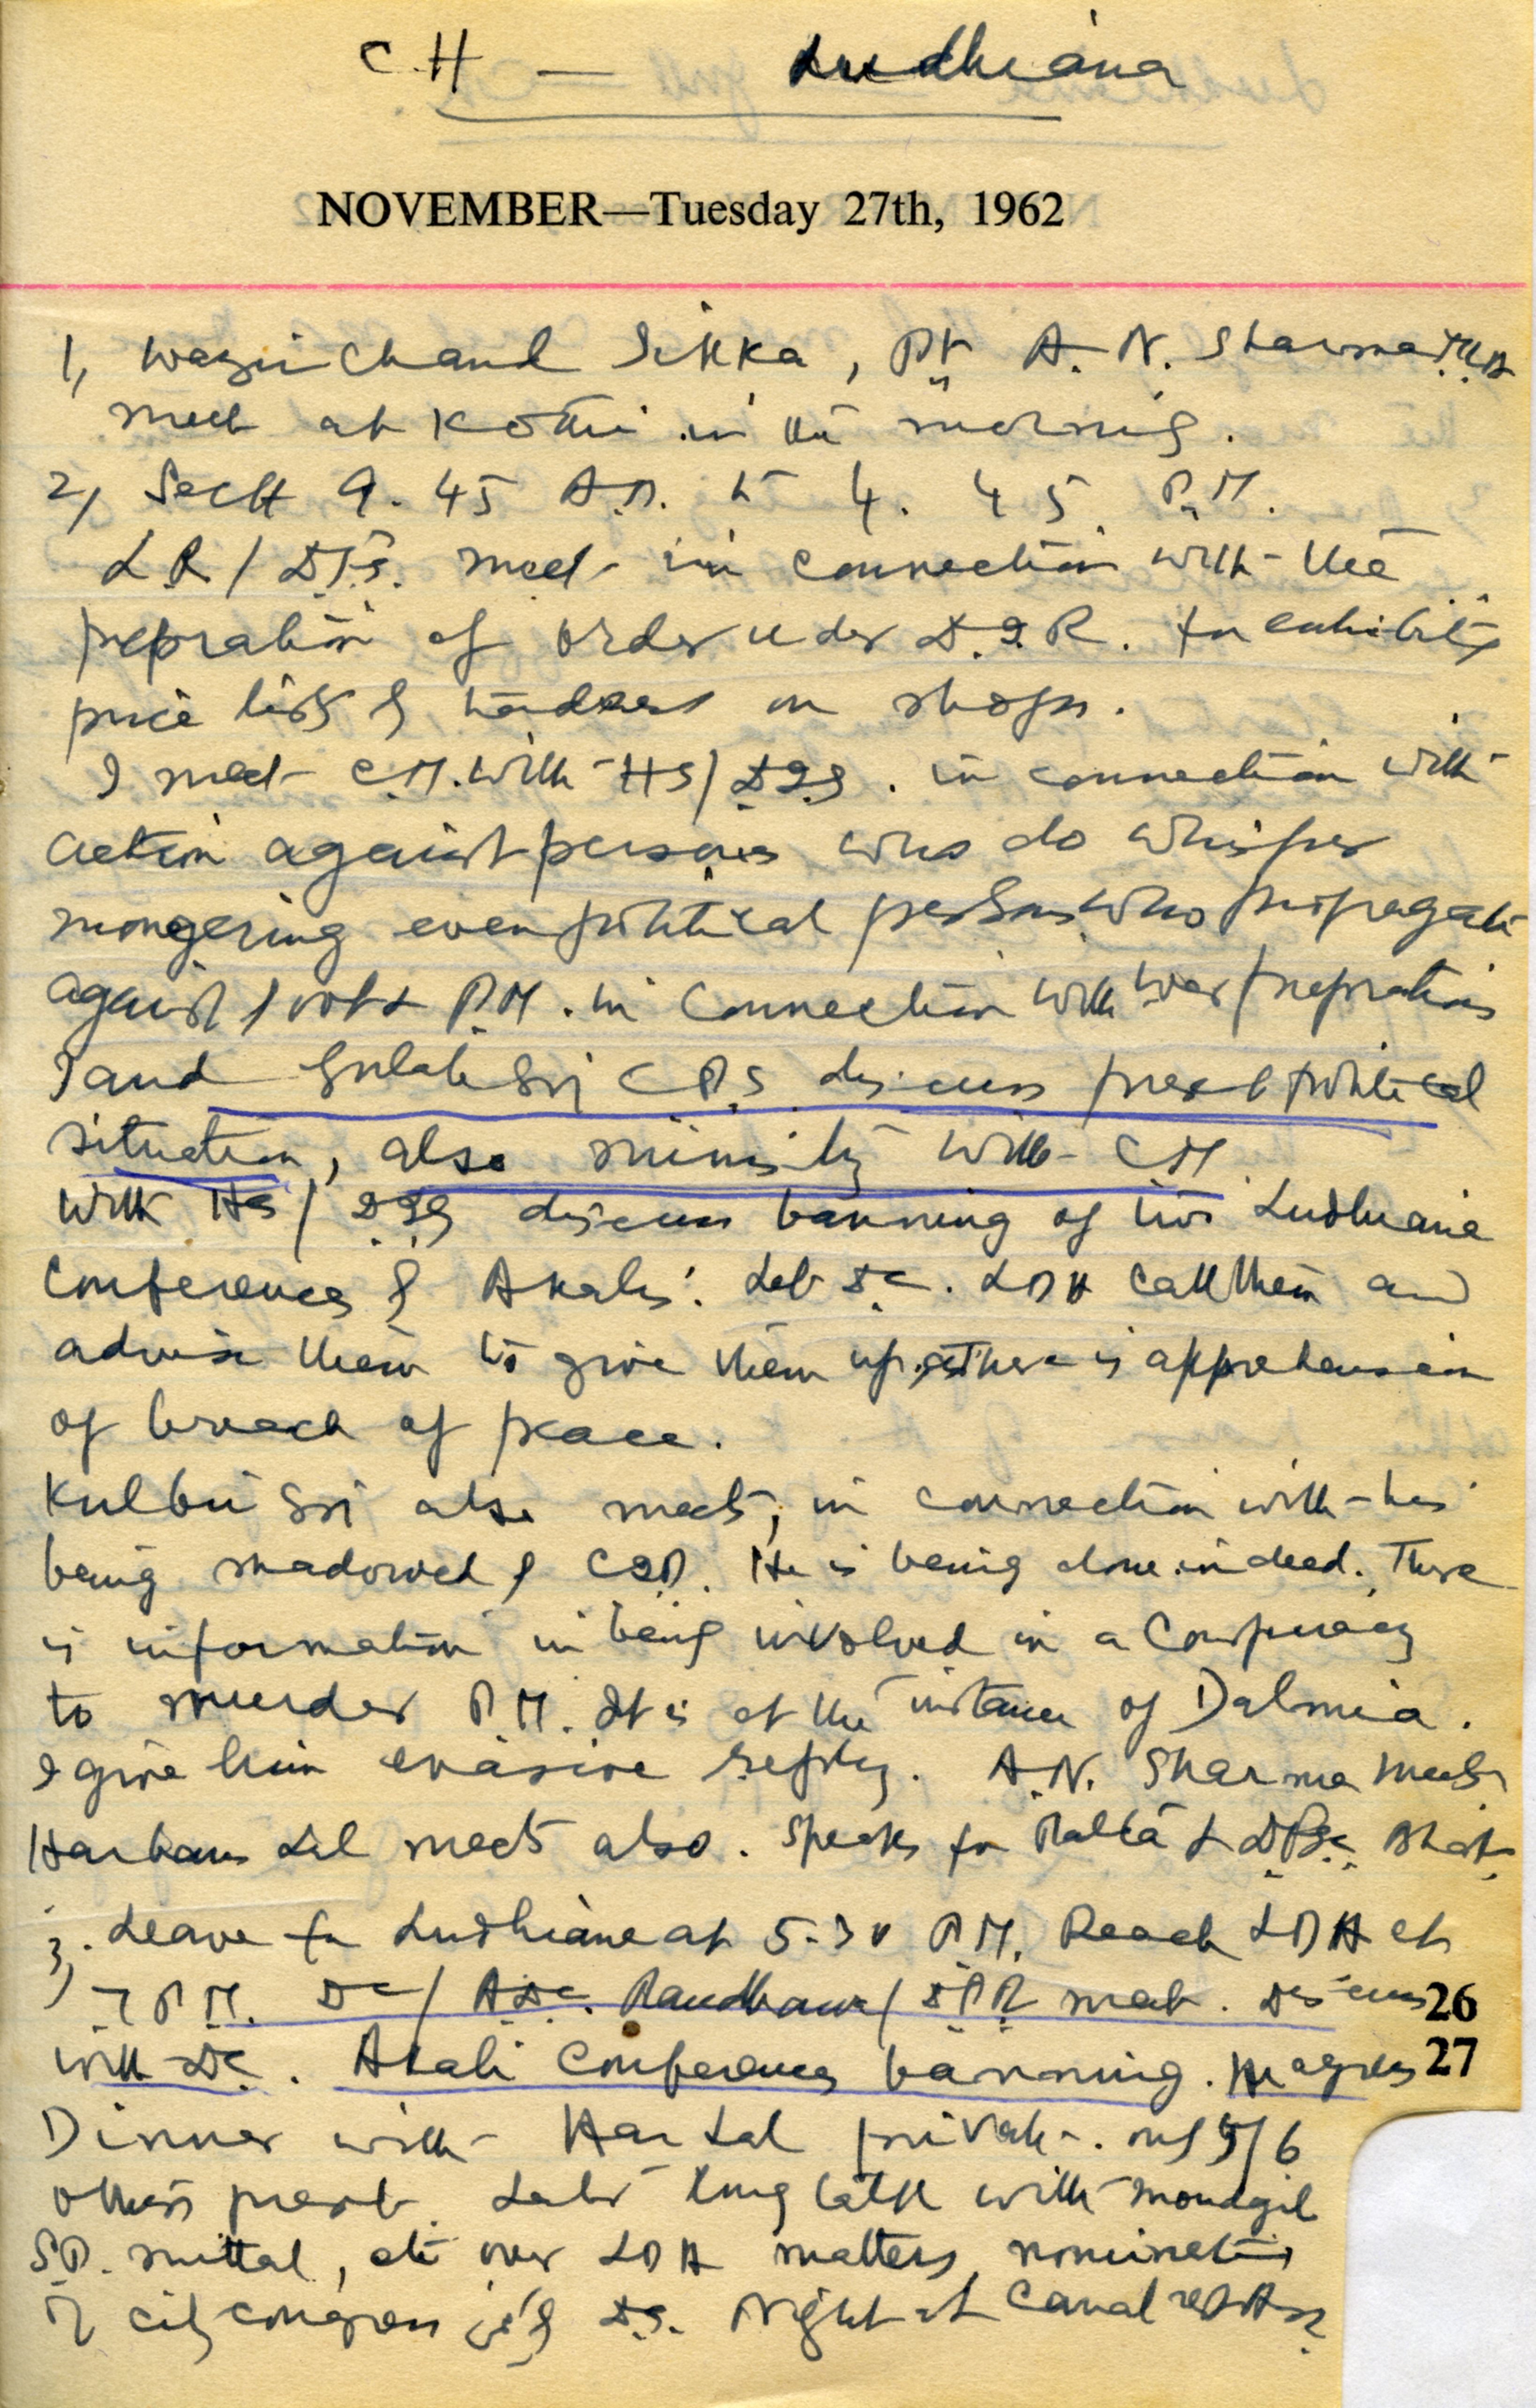 C.H — Ludhiana
NOVEMBER—Tuesday 27th, 1962
1, Wazir Chand Sikka, Pt. A. N. Sharma
meet at Kothi in the morning.
2, Sectt 9. 45 A.M. to 4. 45 P.M.
L.R / D.F.S. meet in connection with the
prepration of order uder D.I.R. for exhibiting
price lists of on shops.
I meet C.M. with HS/D.I.G. in connection with
action against persons who do whisper
mongering even political persons who propagate
against Govt & P.M. in connection with war preprations
I and Gulab Sgh C.P.S. discuss present political
situation, also ministry with CM
With HS / D.I.G discuss banning of two Ludhiana
Conferences of Akalis. Let D.C. LDH call them and
advise them to give them up as there is apprehension
of breach of peace.
Kulbir Sgh also meets, in connection with his
being shadowed by C.I.D. He is being done indeed. There
is information in being involved in a Conspiracy
to murder P.M. It is at the instance of Dalmia.
I give him evasive reply. A.N. Sharma meets
Harbans Lal meets also. Speaks for &
3, Leave for Ludhiana at 5-30 P.M. Reach LDH at
7 P.M. DC/ A.D.C. Randhawa/ meet. Discuss
26
with DC. Akali Conferences banning. He agrees
27
Dinner with Har Lal private. only 5/6
others present. Later long talk with Moudgil
S.P. Mittal, etc over LDH matters, nominations
of city congress Night at Canal rest house